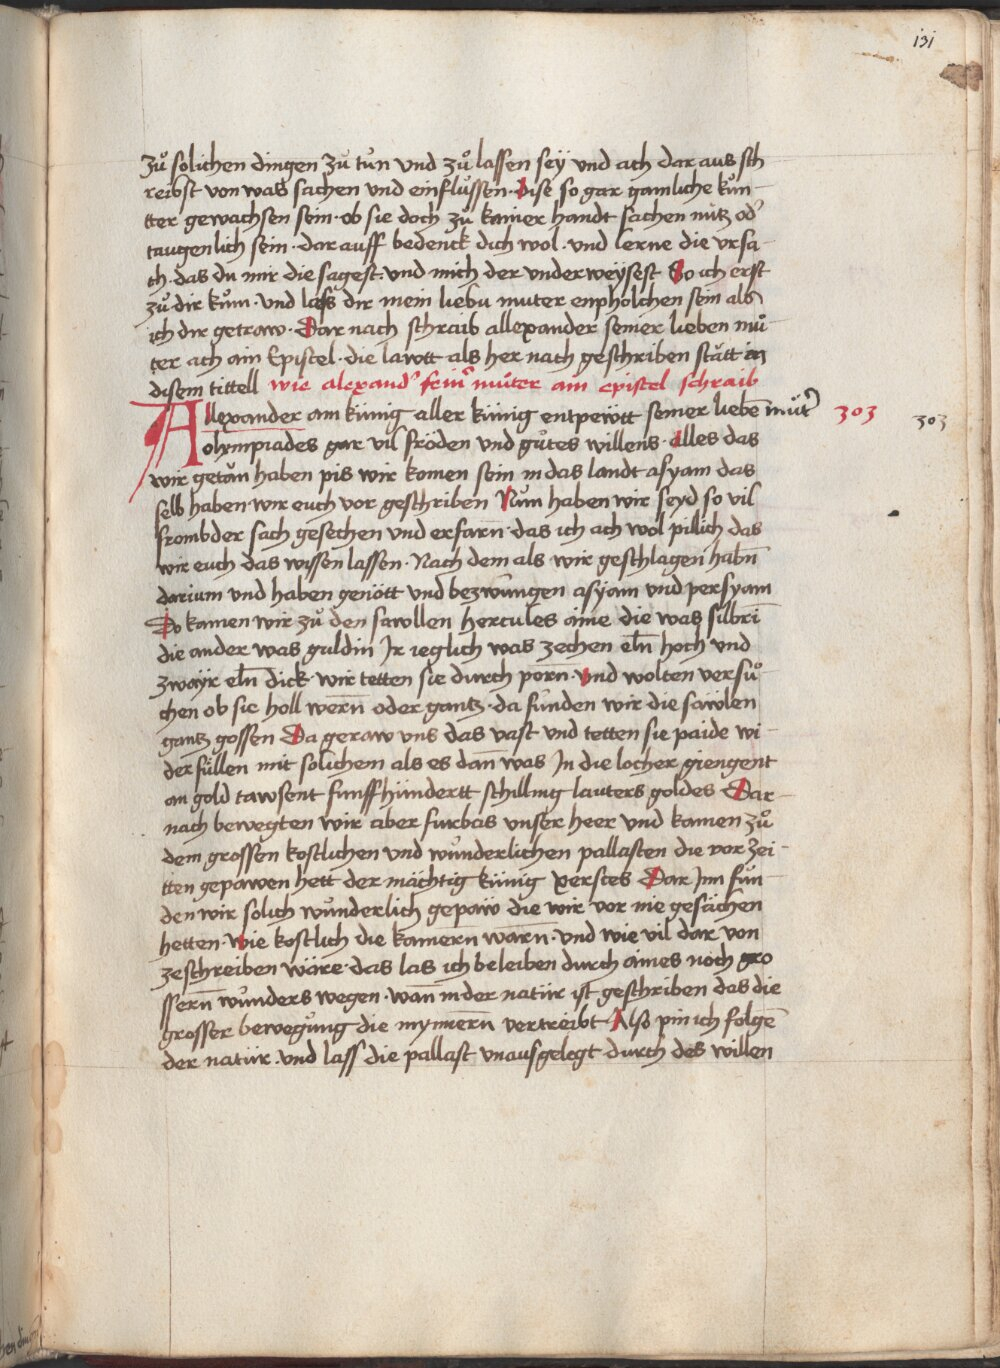 131
zů solichen dingen zů tůn vnd zů lassen seÿ vnd ach dar aus sch
reibst von was sachen und einflüssen · Dise so gar gamliche kün-
tter gewachsen sein · ob sie doch zů kainer handt sachen nütz od᷑
taugenlich sein · dar auff bedenck dich wol · vnd lerne die vrsa-
ch · das du mir die sagest · vnd mich der vnderweÿsest So ich erst
zů dir kům · vnd lass dir mein liebu muter enpholchen sein als
ich dir getraw · Dar nach schraib allexander seiner lieben mů-
ter ach ain Epistel · die lawtt als her nach geschriben statt in
disem tittell wie alexand᷑ sein᷑ muter ain epistel schraib
Allexander ain künig aller künig entpewtt seiner liebē můt᷑ 303 303
olympiades gar vil fröden vnd gůtes willens · alles das
wir getan haben pis wir komen sein in das landt asyam das
selb haben wir euch vor geschriben Nům haben wir seyd so vil
frombder sach gesechen vnd erfarn̄ · das ich ach wol pillich das
wir euch das wissen lassen · Nach dem als wir geschlagen habn̄
darium vnd haben genött vnd bezwungen asÿam vnd persyam
Do kamen wir zů den sawllen hercules aine die was silbrī
die ander was guldin Ir ieglich was zechen eln̄ hoch vnd
zwaÿr eln̄ dick · wir tetten sie durch porn̄ · vnd wolten versů-
chen ob sie holl wern̄ oder gantz · da funden wir die sawlen
gantz gossen Da geraw vns das vast vnd tetten sie paide wi-
der füllen mit solichem als es dan̄ was In die locher giengent
an gold tawsent funffhündertt schilling lauters goldes Dar-
nach bewegten wir aber furbas vnser heer vnd kamen zů
dem grossen kostlichen vnd wunderlichen pallasten die vor zei-
tten gepawen hett der mächtig künig xerses Dar Inn fun-
den wir solich wunderlich gepaw die wir vor nie gesächen
hetten · wie kostlich die kamern̄ warn̄ · vnd wie vil dar von
zeschreiben wäre · das las ich beleiben durch aines noch gro
ssern̄ wunders wegen · wan̄ in der natür ist geschriben das die
grosser bewegung die mynnern̄ vertreibt Also pin ich folgē
der natür · vnd lass die pallast vnausgelegt durch des willen